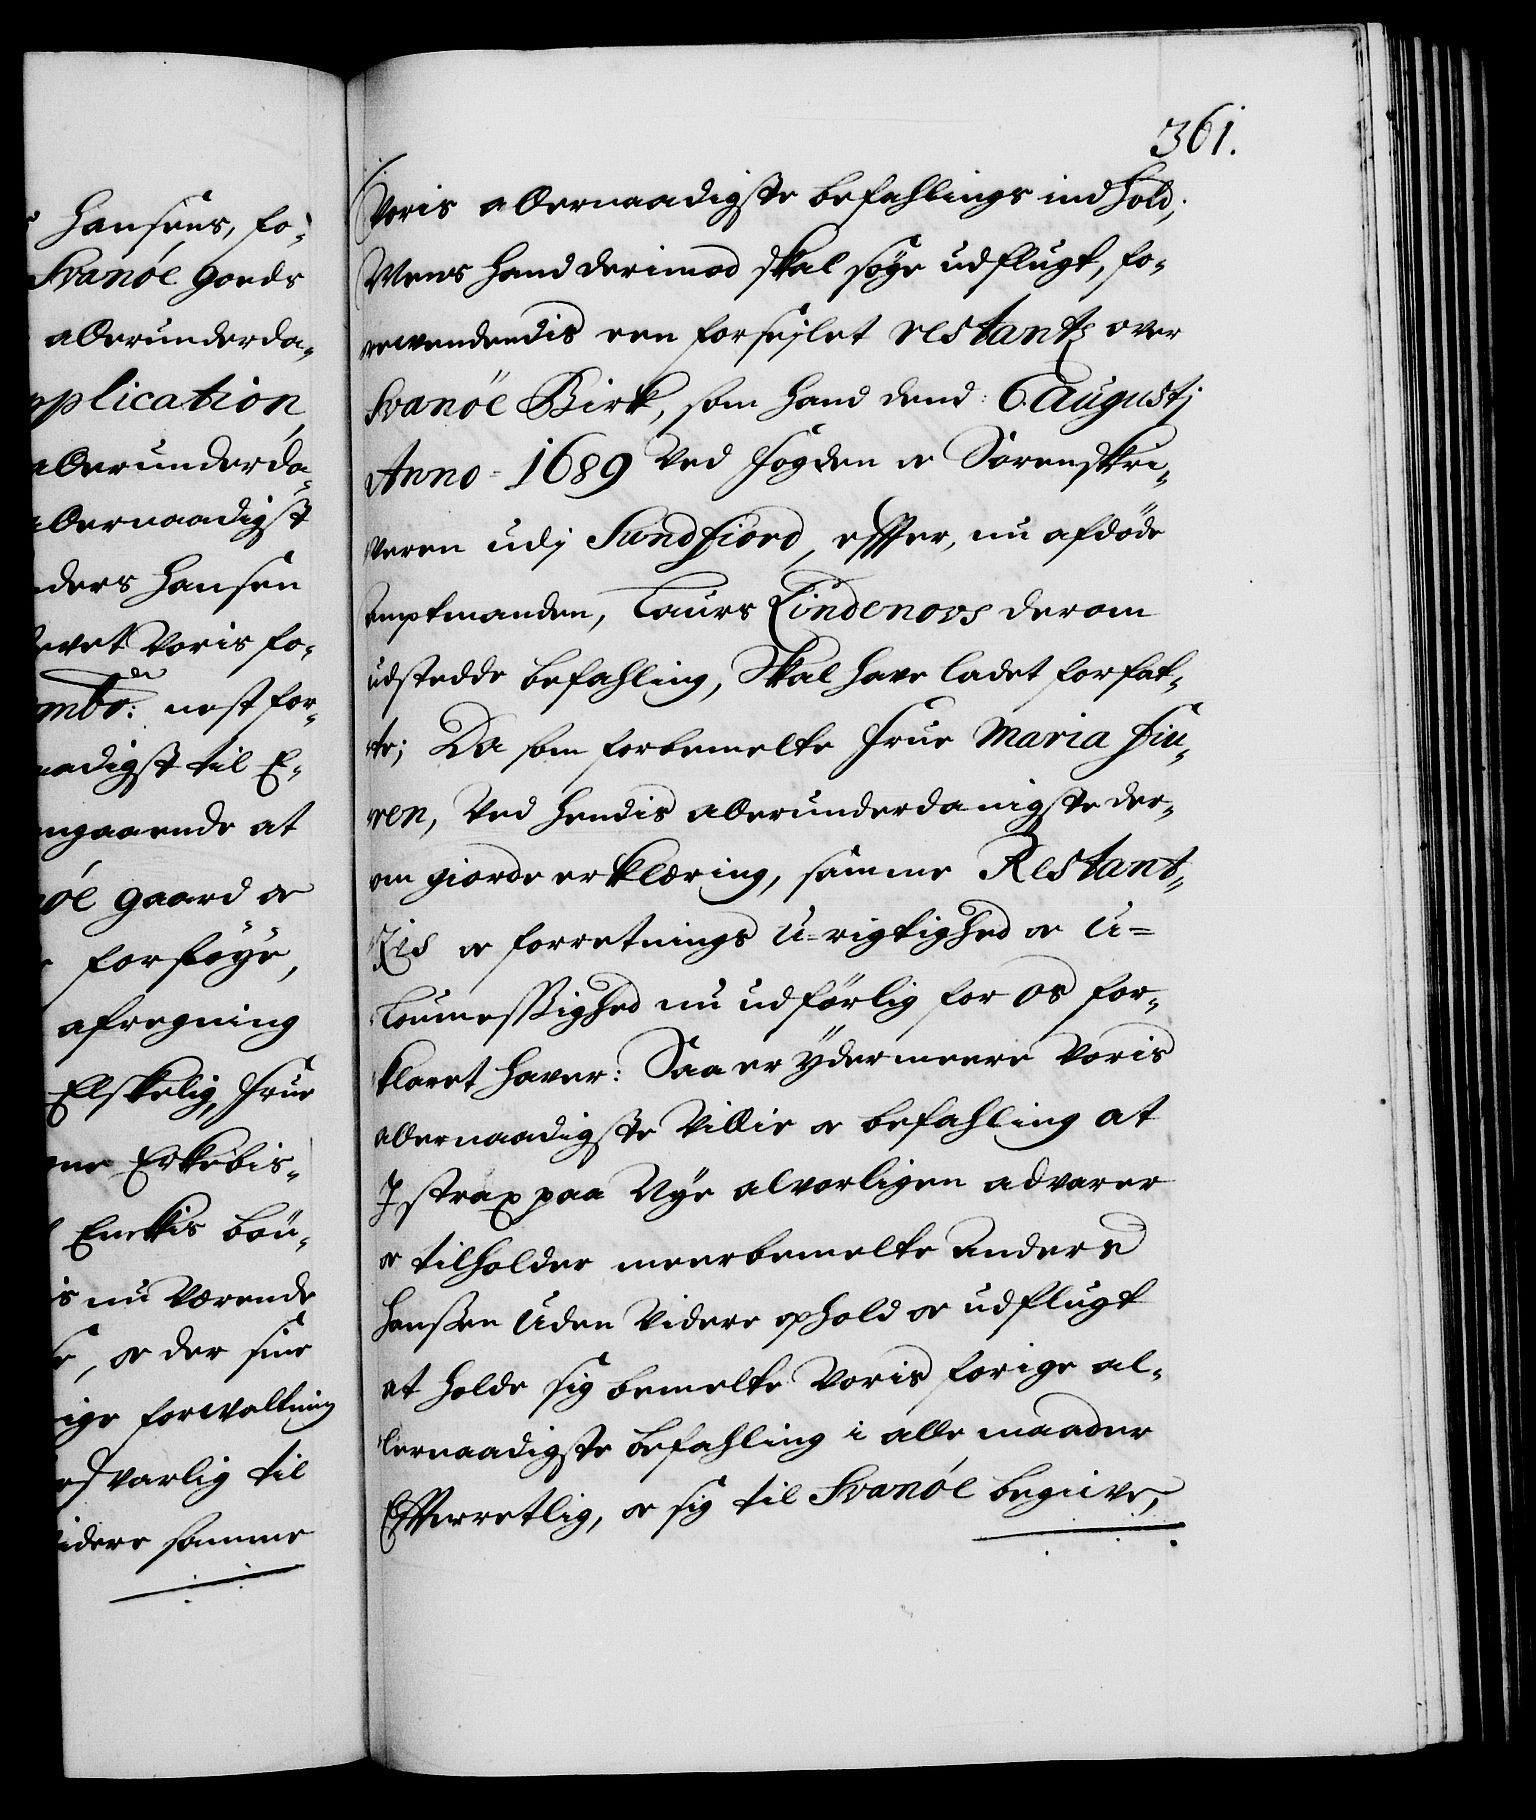 Hansens, fo-
Svanöe goeds
allerunderda-
pplication,
allerunderda-
allernaadigst
ders Hansen
evet Voris fo-
mbr: nest for-
aadigst til E-
ngaaende at
öe gaard oc
forföye,
afregning
Elskelig, Frue
gne Erkebis-
Enckis boü-
is nu Værende
e, oc der sine
ige forwaltning
varlig til
idere samme
361.
Voris allernaadigste befahlings indhold;
Mens hand derimod skal søge udflugt, fo-
rewendendis een forseglet restants over
Svanöe Birk, som hand dend: 6. Augustj
Anno = 1689 Ved Fogden oc Sorenskri-
veren udj Sundfiord, effter, nu afdöde
amptmanden, Laurs Lindenovs derom
udstedde befahling, Skal have ladet forfat-
te; Da som forbemelte Frue Maria Fiu-
ren, Ved hendis allerunderdanigste der-
om giorde erklæring, samme Restant-
zis oc forretnings U-rigtighed oc U=
Loumessighed nu udförlig for os for-
klaret haver: Saa er ÿdermeere Voris
allernaadigste Villie oc befahling at
I strax paa Nÿe alvorligen advarer
oc tilholder meerbemelte Anders
Hanssen Uden Videre ophold oc udflugt
at holde sig bemelte Voris forige al-
lernaadigste befahling i alle maader
Effterretlig, oc sig til Svanöe begive,